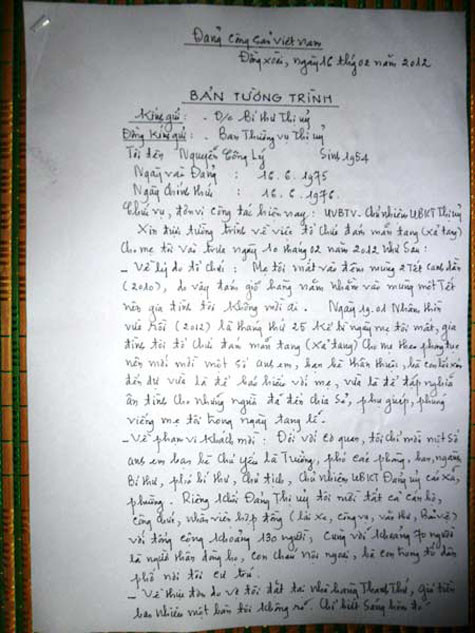 Đảng Cộng sản Việt Nam
Đồng xoài, ngày 16 tháng 02 năm 2012
BẢN TƯỜNG TRÌNH
Kính gửi: - Đ/c Bí thư Thị uỷ
Đồng Kính gửi: - Ban Thường vụ Thị uỷ
Tôi tên Nguyễn Công Lý Sinh 1954
Ngày vào Đảng : 16.6.1975
Ngày Chính thức : 16.6.1976
Chức vụ, đơn vị công tác hiện nay: UVBTV - Chủ nhiệm UBKT Thị uỷ
Xin trình tường trình về việc tổ chức đám mãn tang (xả tang)
Cho mẹ tôi vào trưa ngày 10 tháng 02 năm 2012 như Sau:
- Về lý do tổ chức: Mẹ tôi mất vào đêm mùng 2 Tết Canh dần
(2010), do vậy đám giỗ hàng năm nhằm vào mùng một Tết
nên gia đình tôi không mời ai. Ngày 19.01 Nhâm thìn
vừa rồi (2012) là tháng thứ 25 kể từ ngày mẹ tôi mất, gia
đình tôi tổ chức đám mãn tang (xả tang) cho mẹ theo phong tục
nên mời một số anh em, bạn bè thân thiết, bà con lối xóm
đến dự vừa là để báo hiếu với mẹ, vừa là để đáp nghĩa
ân tình cho những người đã đến chia sẻ, phụ giúp, phúng
viếng mẹ tôi trong ngày tang lễ.
- Về phạm vi khách mời: Đối với cơ quan, tôi chỉ mời một số
anh em bạn bè chủ yếu là Trưởng, phó các phòng, ban, ngành,
Bí thư, phó bí thư, Chủ tịch, Chủ nhiệm UBKT Đảng uỷ các xã,
phường. Riêng khối Đảng Thị uỷ tôi mời tất cả cán bộ,
công chức, nhân viên hợp đồng (lái xe, công vụ, văn thư, Bảo vệ)
với tổng cộng khoảng 130 người, cùng với khoảng 70 người
là người thân dòng họ, con cháu nội ngoại, bà con trong tổ dân
phố nơi tôi cư trú.
- Về thực đơn do vợ tôi đặt tại nhà hàng Thanh Thư, giá tiền
bao nhiêu một bàn tôi không rõ. Chỉ biết Sáng hôm đó